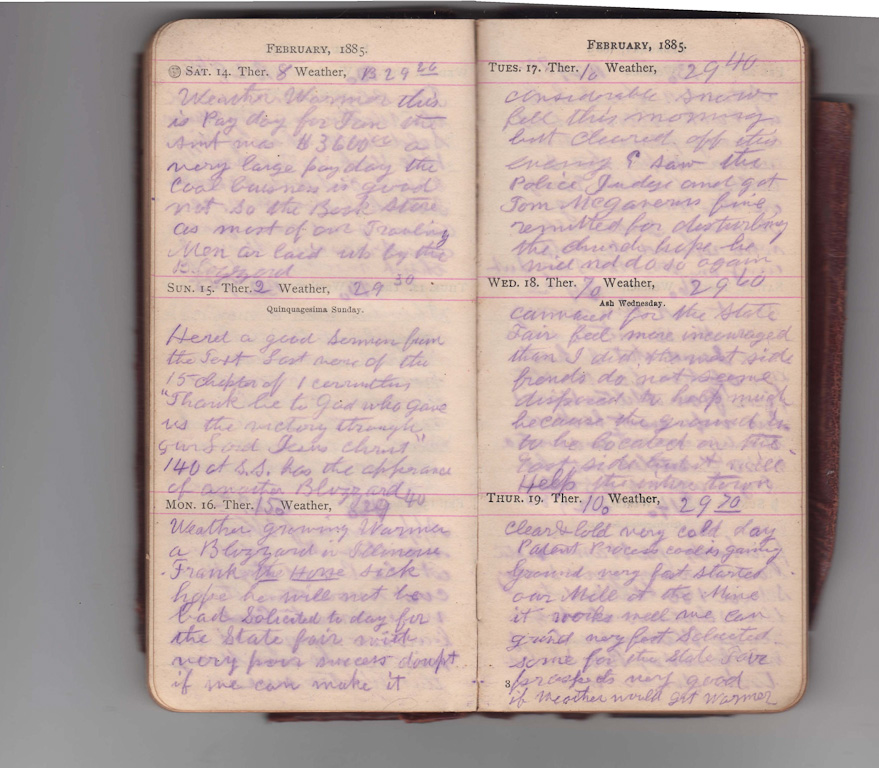 FEBRUARY, 1885.
SAT. 14. Ther. 8 Weather, B 29 20
Weather Warmer this
is Pay day for Tom the
Amt was $3600 00 a
very large pay day the
Coal business is good
not so the Book Store
as most of our Traveling
Men ar laid up by the
Blizzard
SUN. 15. Ther. 2 Weather, 29 30
Quinquagesima Sunday.
Herd a good Sermon from
the Text Last verse of the
15 chapter of 1 corrinthis
"Thank be to God who gave
us the victory through
our Lord Jesus Christ"
140 at S.S. has the apperance
of another Blozzard
MON. 16. Ther. 15 Weather, 29 40
Weather growing Warmer
a Blozzard in
Frank the Horse sick
hope he will not be
bad Solicited to day for
the State fair with
very poor success doupt
if we can make it
FEBRUARY, 1885.
TUES. 17. Ther. 10 Weather, 29 40
Considerable snow
fell this morning
but cleared off this
evening & saw the
Police Judge and got
Tom McGaverns fine
remitted for disturbing
the church hope he
will not do so again
WED. 18. Ther. Weather, 29 60
Ash Wednesday.
canvased for the State
Fair feel more incouraged
than I did the west side
friends do not seeme
disposed to help much
because the ground is
to be located on the
East side but it will
Help the entire town
THUR. 19. Ther. 10 Weather, 29 70
Clear & Cold very cold day
Patent Process coal is gaining
ground very fast started
our Mill at the Mine
it works well we can
grind very fast Solicited
some for the State Fare
3 prospects very good
if Weather would get warmer